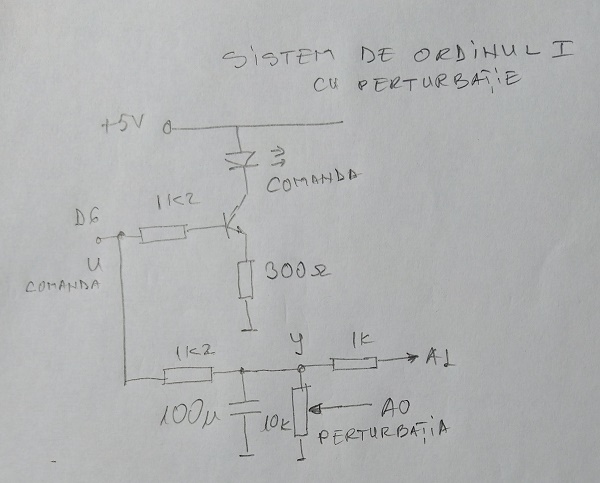 SISTEM DE ORDINUL I
CU PERTURBAȚIE
+5V
COMANDA
1K2
D6
U
COMANDA
300Ω
1K2
Y
1K
A1
100µ
10K
A0
PERTURBAȚIA